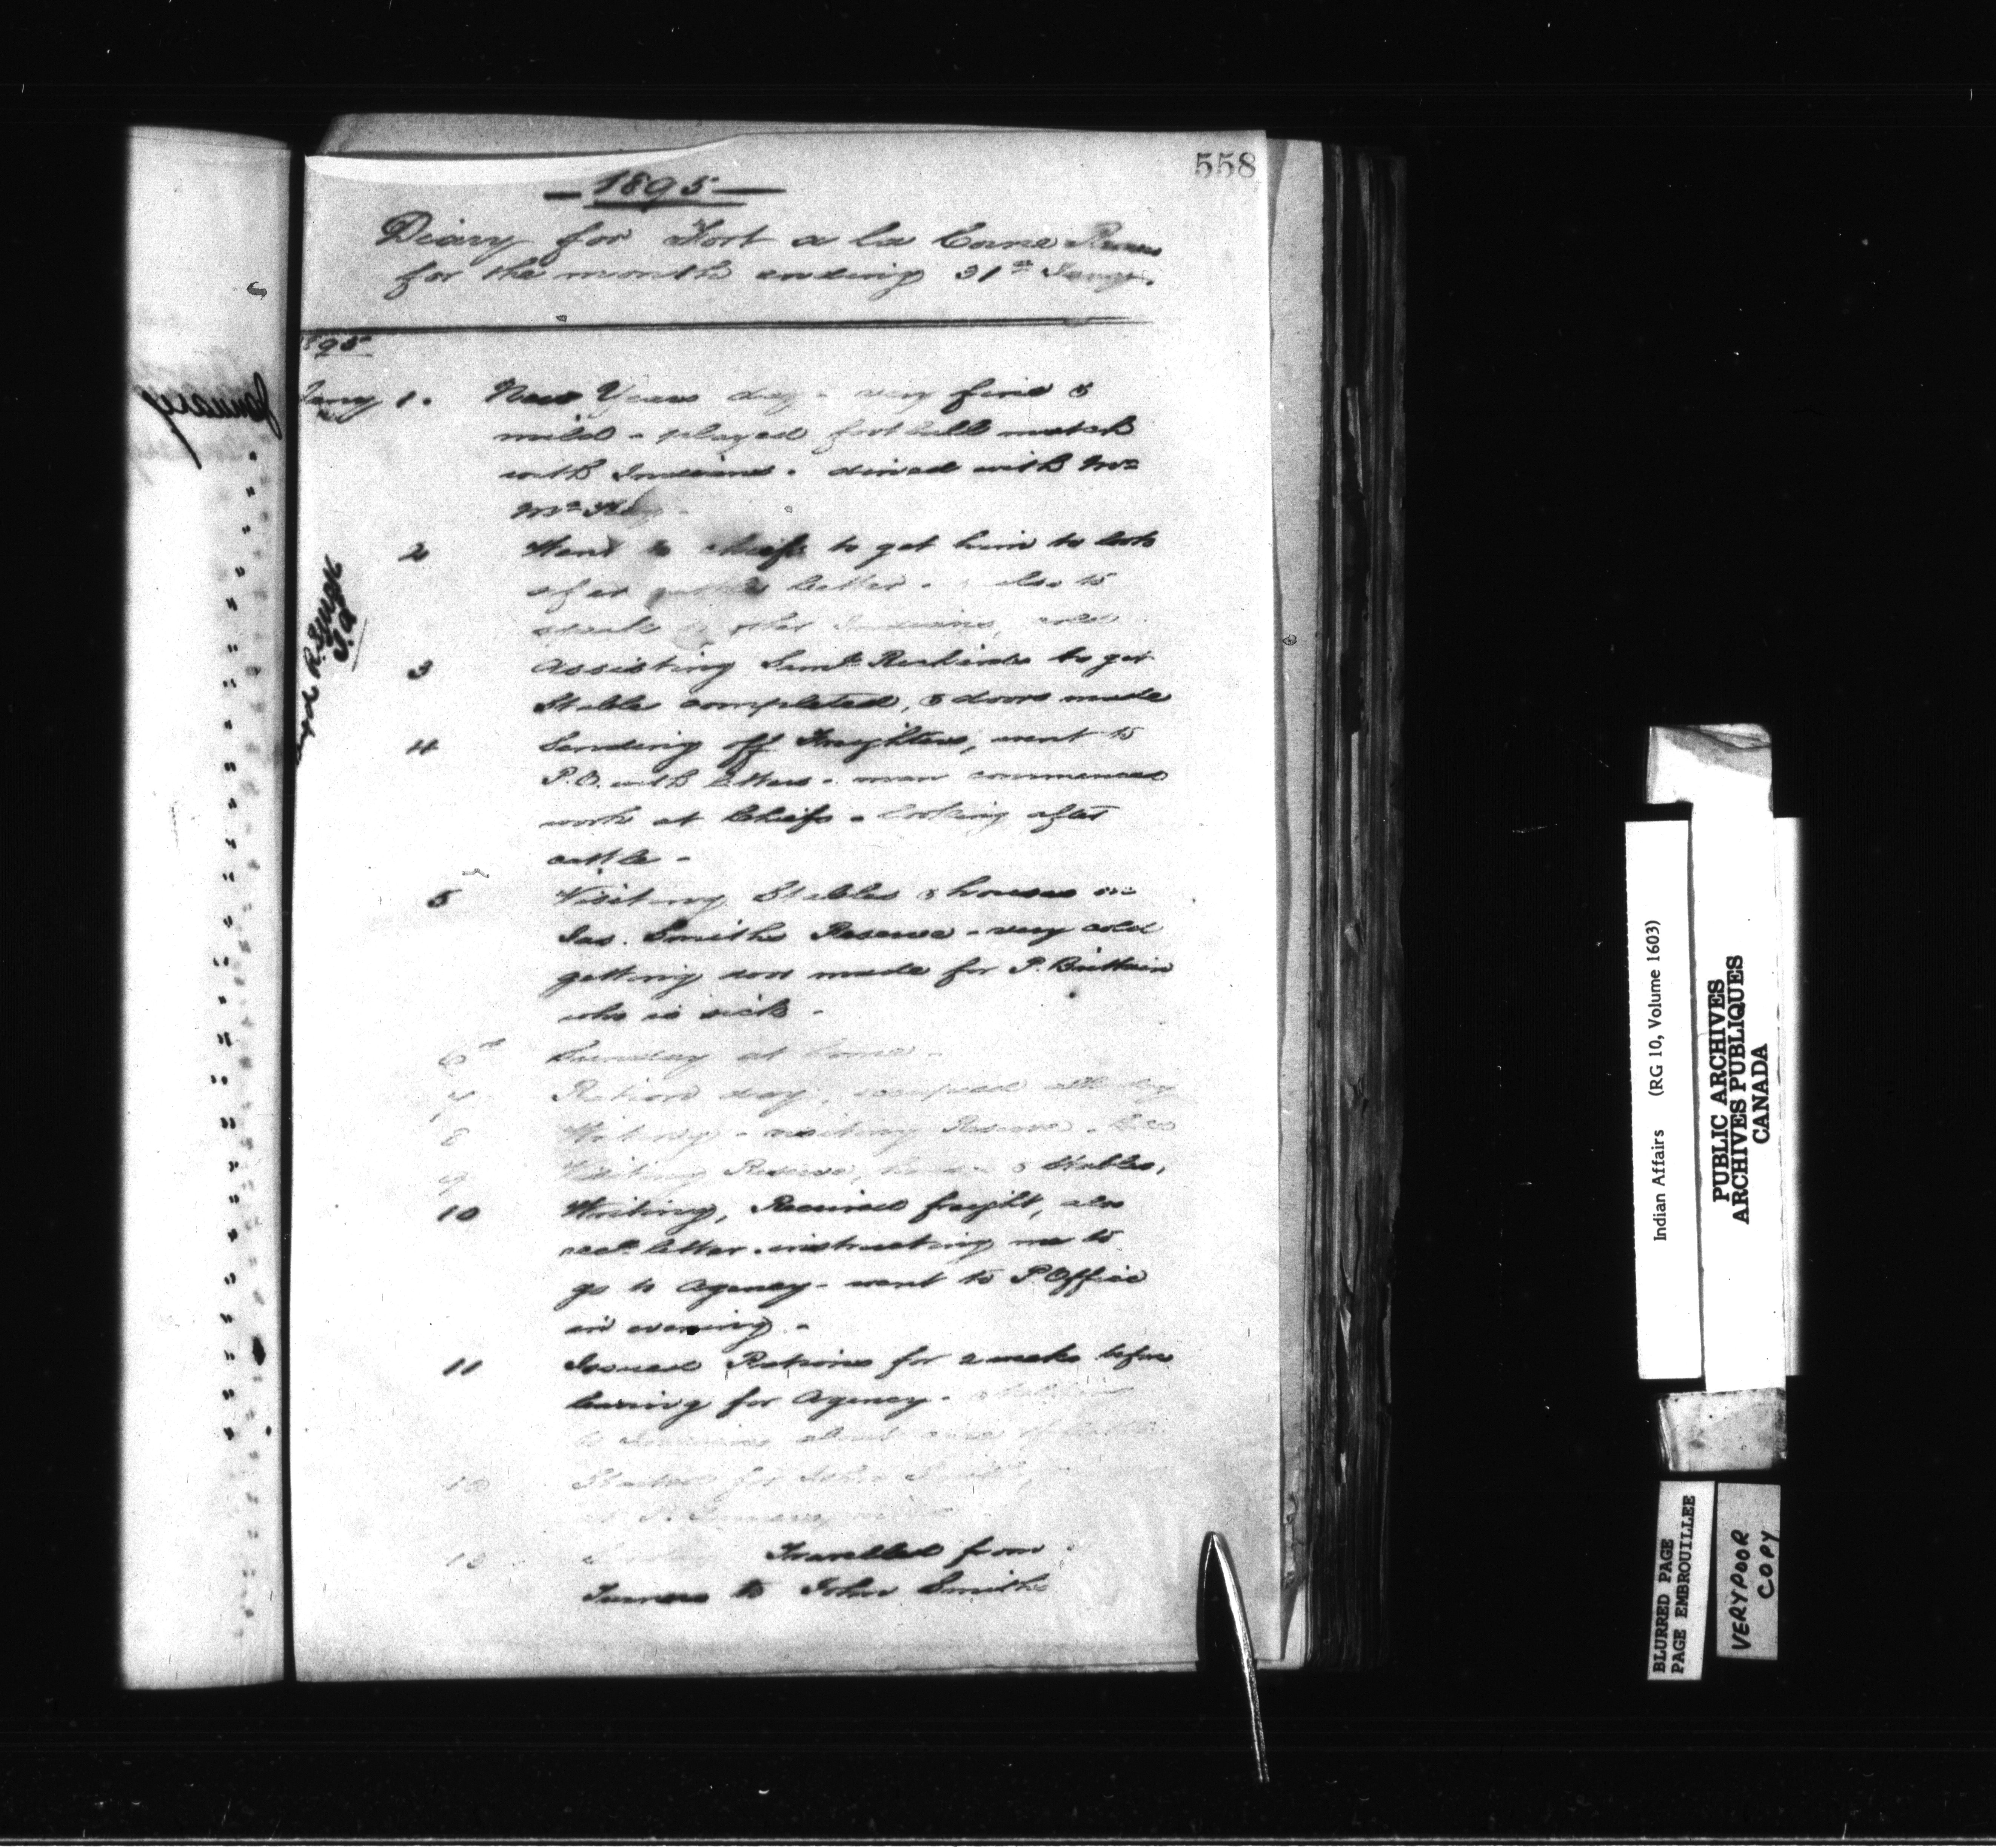 558
— 1895 —
Diary for Fort a la Corne
for the month ending 31st Jany.
1895
Jany 1. New Years day - very fine &
mild - played foot ball match
with Indians - dined with Mr
2 Went to Chiefs to get him to look
after cattle better - also to
other Indians, cold
3 Assisting to get
Stables completed, & doors made
4 Sending off Freighters, went to
P.O. with letters - man commences
work at Chiefs - looking after
cattle -
5 Visiting Stables & houses on
Jas. Smiths Reserve - very cold
getting made for P. Brittain
who is sick -
6th Sunday at home -
7 Ration day, occupied all day
8 Writing - visiting Reserve -
9 Visiting Reserve, & Stables,
10 Writing, Received freight, also
recd. letter instructing me to
go to Agency - went to P Office
in evening -
11 Issued Rations for 2 weeks before
leaving for Agency -
to Indians about care of
Started for John Smiths,
at
Travelled from
to John Smiths
January
Indian Affairs (RG 10, Volume 1603)
PUBLIC ARCHIVES
ARCHIVES PUBLIQUES
CANADA
BLURRED PAGE
PAGE EMBROUILLEE
VERY POOR
COPY